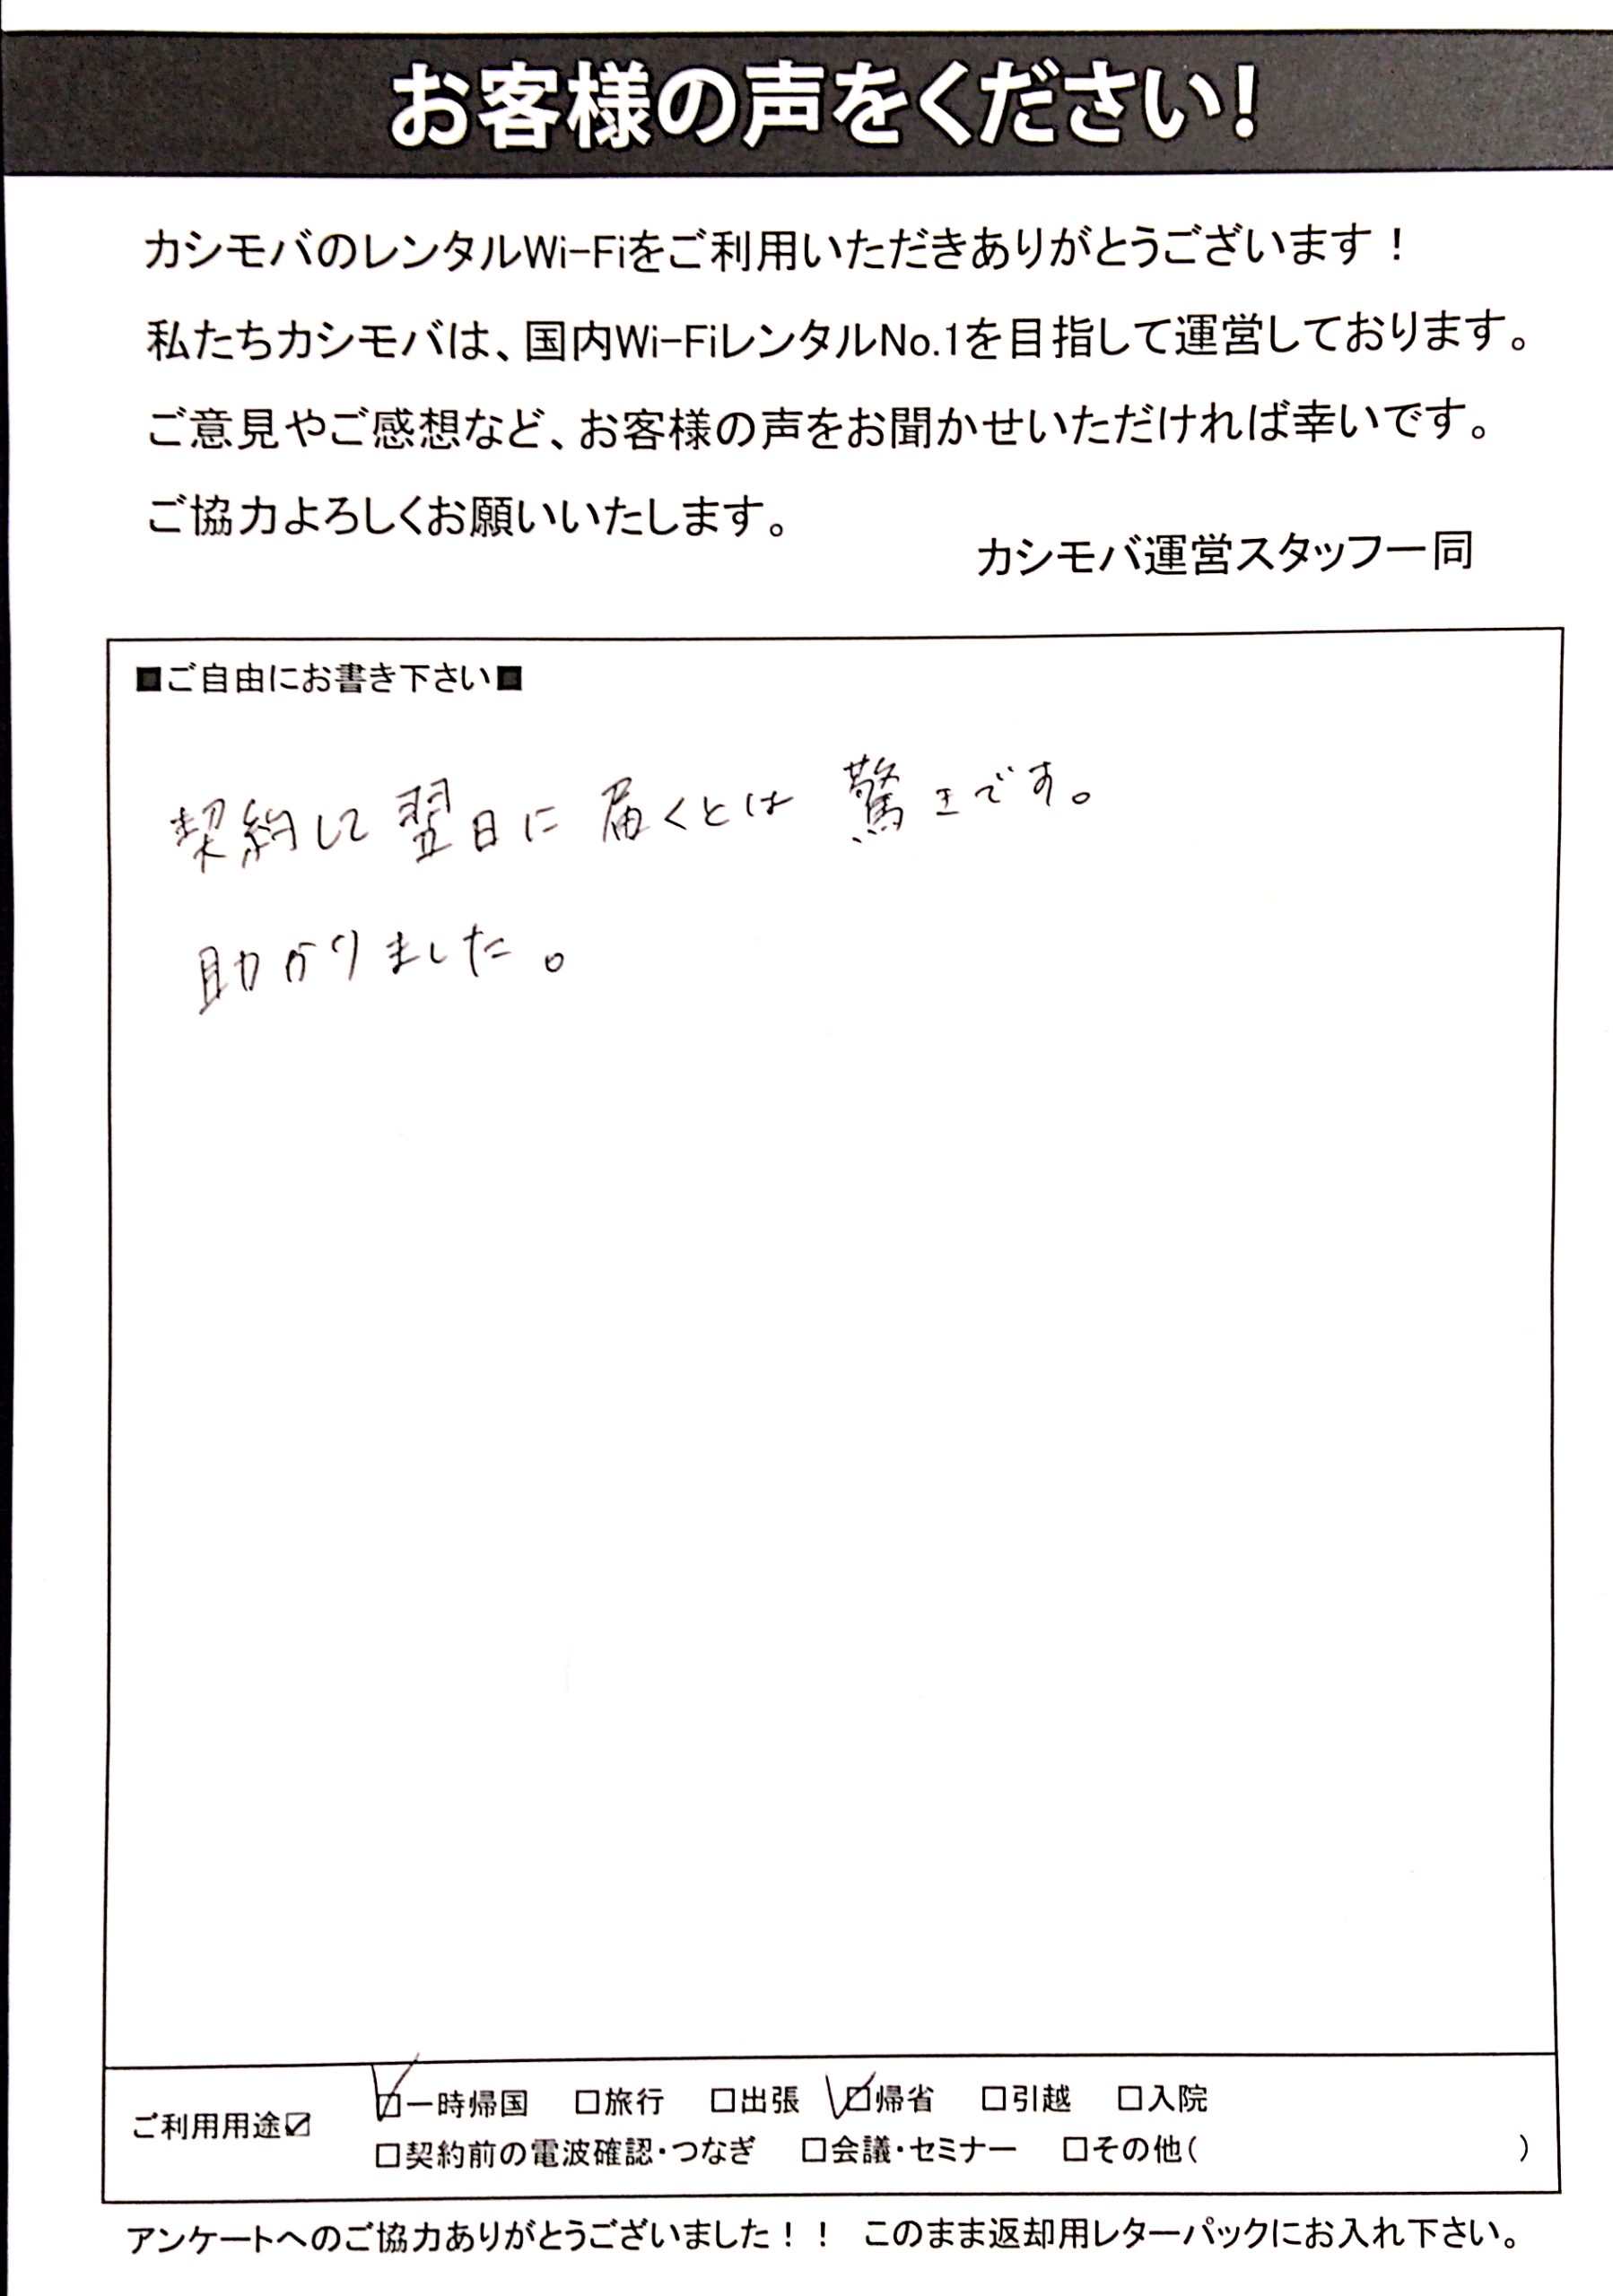 お客様の声をください!
カシモバのレンタルWi-Fiをご利用いただきありがとうございます！
私たちカシモバは、国内Wi-FiレンタルNo.1を目指して運営しております。
ご意見やご感想など、お客様の声をお聞かせいただければ幸いです。
ご協力よろしくお願いいたします。
カシモバ運営スタッフ一同
■ご自由にお書き下さい■
契約して翌日に届くとは驚きです。
助かりました。
ご利用用途☑
☑一時帰国 □旅行 □出張 ☑帰省 □引越 □入院
□契約前の電波確認・つなぎ □会議・セミナー □その他( )
アンケートへのご協力ありがとうございました！！ このまま返却用レターパックにお入れ下さい。